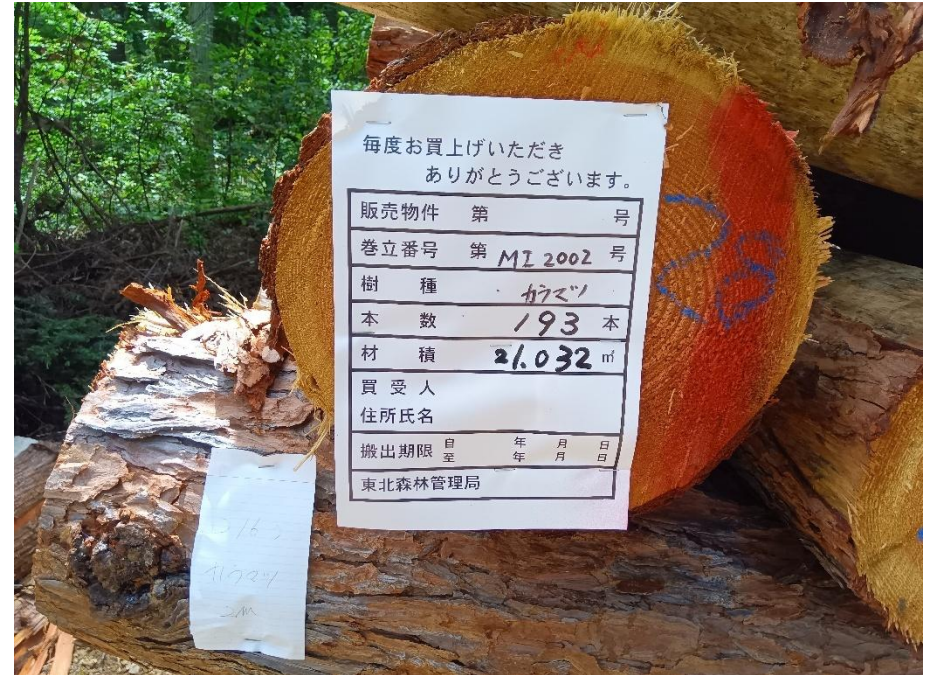 毎度お買上げいただき
ありがとうございます。
販売物件 第 号
巻立番号 第 MI 2002 号
樹種 カラマツ
本数 193 本
材積 21.032 ㎥
買受人
住所氏名
搬出期限 自 年 月 日
至 年 月 日
東北森林管理局
カラマツ
2m